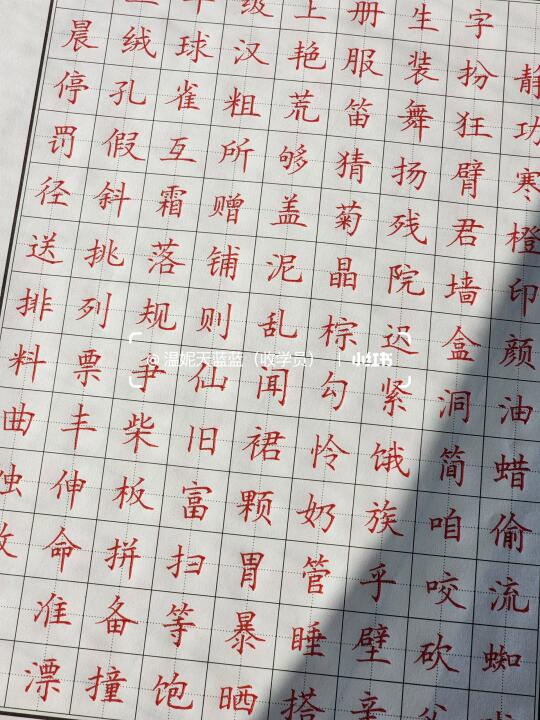 级 上 册 生 字
晨 绒 球 汉 艳 服 装 扮 静
停 孔 雀 粗 荒 笛 舞 狂 功
罚 假 互 所 够 猜 扬 臂 寒
径 斜 霜 赠 盖 菊 残 君 橙
送 挑 落 铺 泥 晶 院 墙 印
排 列 规 则 乱 棕 迟 盒 颜
@温妮天蓝蓝(收学员) | 小红书
料 票 争 仙 闻 勾 紧 洞 油
曲 丰 柴 旧 裙 怜 饿 简 蜡
伸 板 富 颗 奶 族 咱 偷
命 拼 扫 胃 管 乎 咬 流
准 备 等 暴 睡 壁 砍 蜘
漂 撞 饱 晒 搭